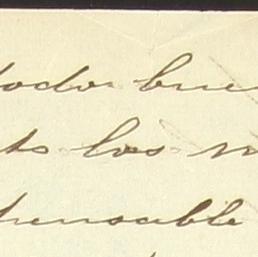 todo bue
ts los n
pensable